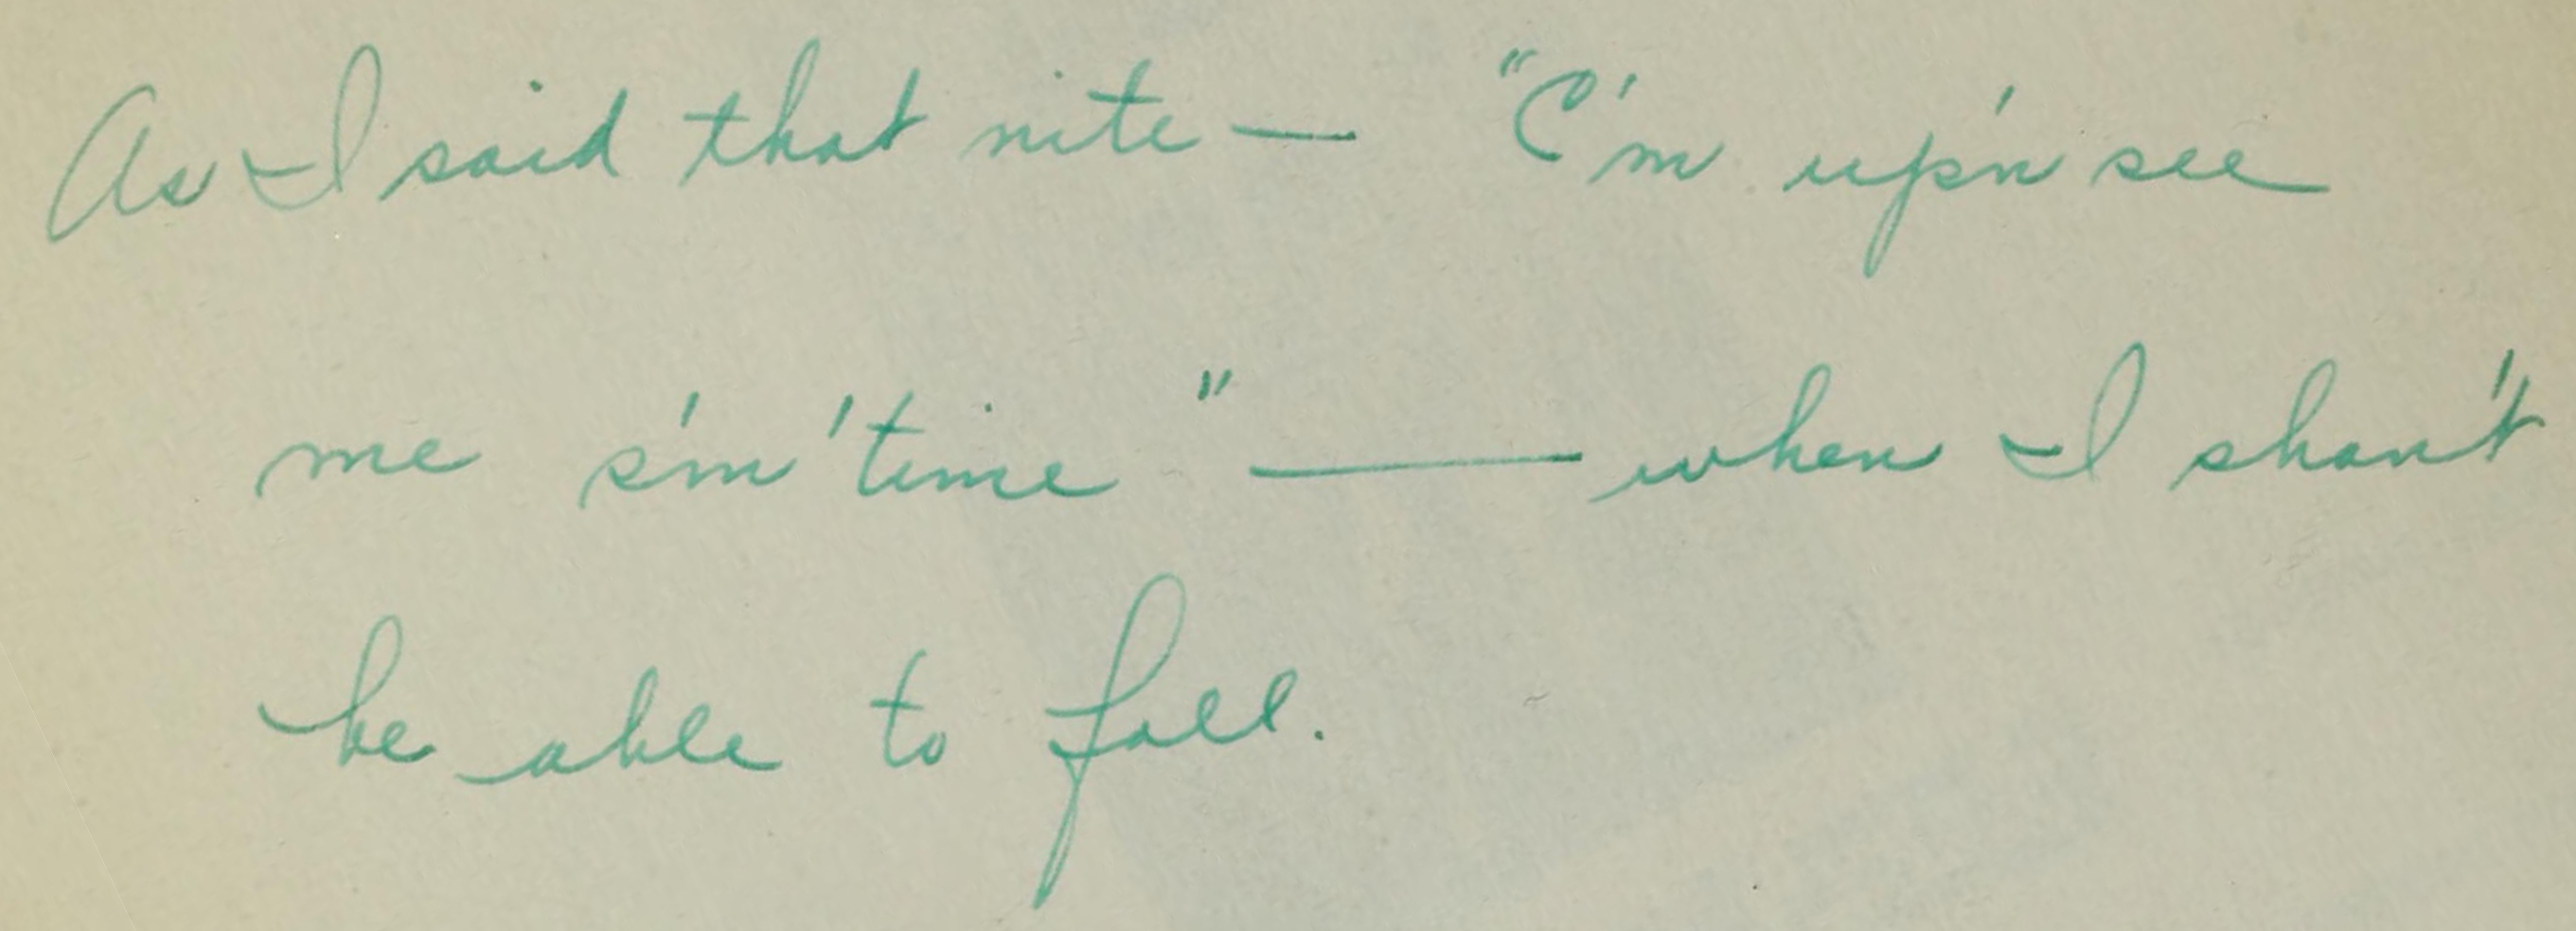 As I said that nite — "C'm up'n see
me s'm'time" — when I shan't
be able to fall.